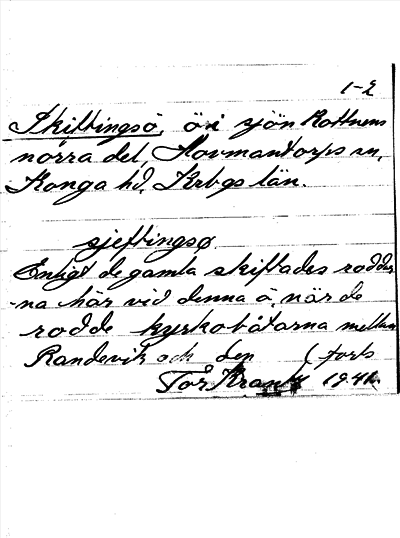 1-2
Skiftingsö, ö i sjön Rottnens
norra del, Hovmantorps sn,
Konga hd, Krbgs län.
sjeftingsø
Enligt de gamla skiftades rodder
na här vid denna ö, när de
rodde kyrkobåtarna mellan
Randevik och den (forts
Tor 1941.